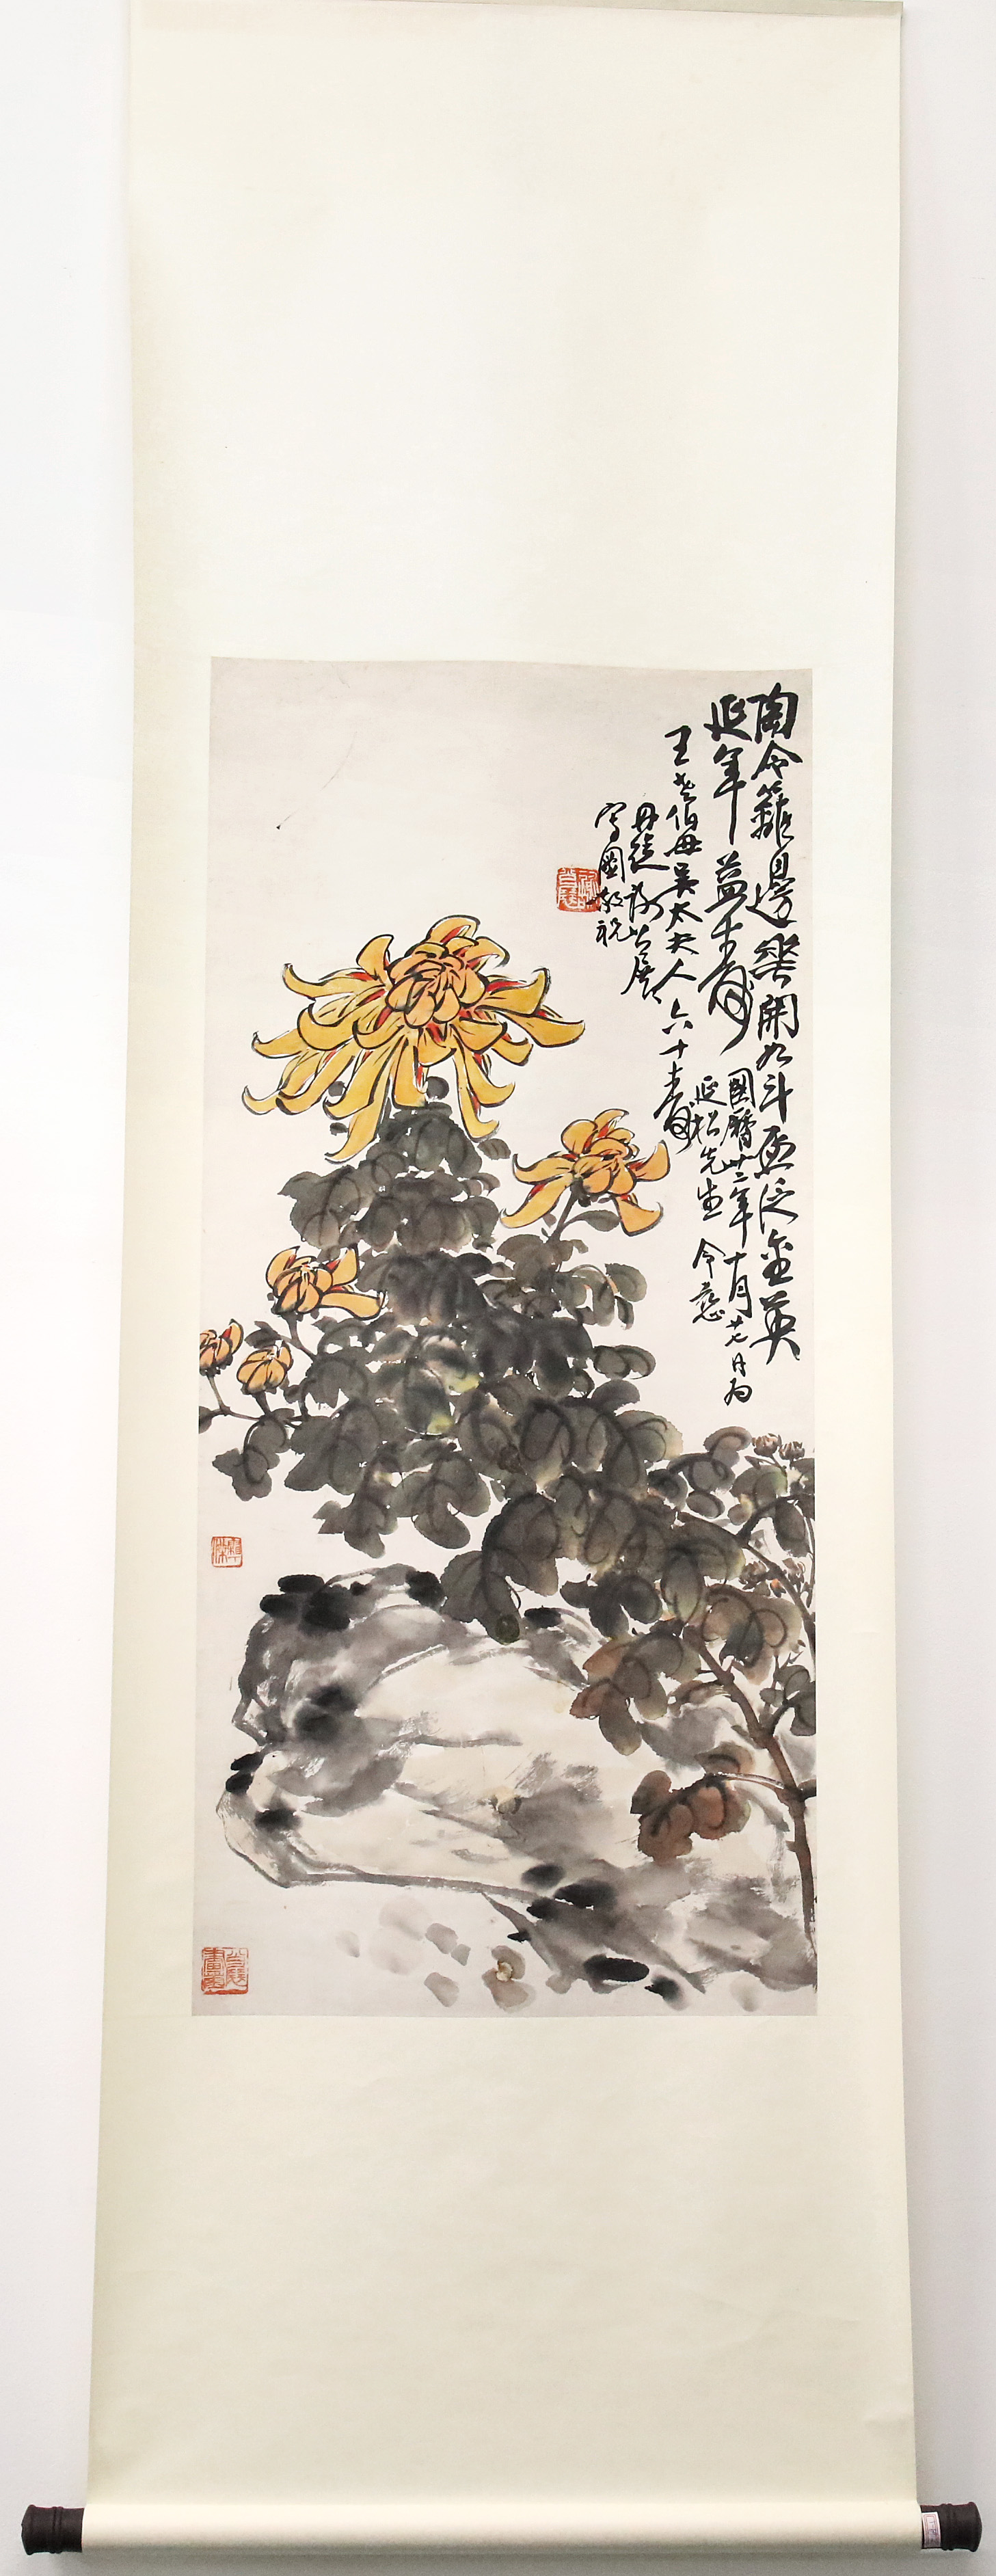 陶令籬邊花開九斗酒泛金英
延年益壽 國曆廿二年十月廿七日為
延松先生 令慈
王老伯母吳太夫人六十壽
丹徒謝公展
寫圖敬祝